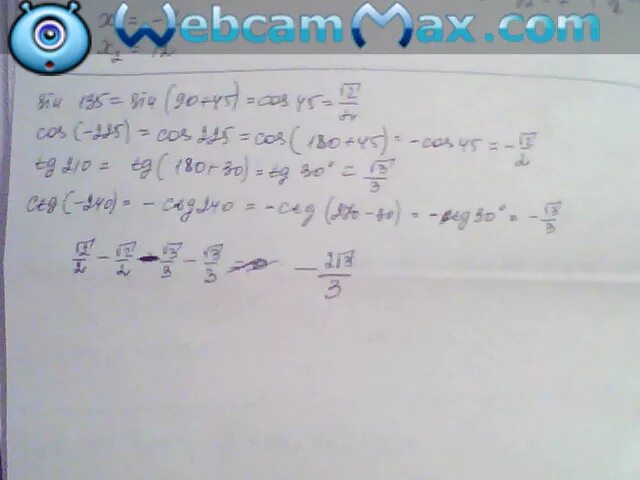 WebcamMax.com
x₂ = 12
sin 135 = sin (90+45) = cos 45 = √2/2
cos (-225) = cos 225 = cos (180+45) = -cos 45 = -√2/2
tg 210 = tg (180+30) = tg 30° = √3/3
ctg (-240) = -ctg 240 = -ctg (270-30) = -tg 30° = -√3/3
√2/2 - √2/2 - √3/3 - √3/3 = - 2√3/3